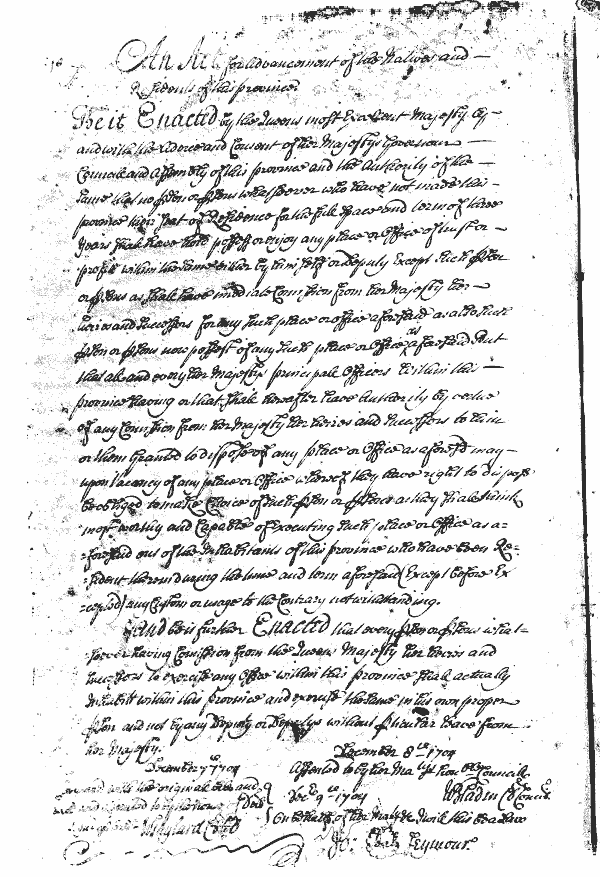 An Act for advancement of the Natives and
Residents of this province
Be it Enacted by the Queens most Excellent Majesty by
and with the advice and Consent of her Majestys Governour
Councill and Assembly of this province and the Authority of the
same that no pson or psons whatsoever who have not made this
province their seat of Residence for the full space and term of three
years shall have hold possess or enjoy any place or Office of trust or
profitt within the same either by him self or deputy Except such pson
or psons as shall have imediate Comission from her Majesty her
heires and Successors for any such place or office aforesaid as also such
pson or psons now possest of any such place or Office as aforesaid But
that all and every her Majestys principale Officers within this
province having or that shall hereafter have Authority by vertue
of any Comission from her Majesty her heires and Successors to him
or them granted to dispose of any place or Office as aforesd may
upon vacancy of any place or Office whereof they have right to dispose
be obliged to make Choice of such pson or psons as they shall think
most worthy and Capable of executing such place or Office as a=
=foresaid out of the Inhabitants of this province who have been Re=
=sident therein during the time and term aforesaid (Except before Ex
=cepted) any Custom or usage to the Contrary notwithstanding.
And be it further Enacted that every pson or psons what=
soever having Comission from the Queens Majesty her heires and
Successors to exercise any Office within this province shall actually
Inhabitt within this province and exercise the same in his own proper
pson and not by any Deputy or Deputys without pticular leave from
her Majesty.
December 8th 1704
December 7 1704
Assented to by her Matys honble Councill
with the originall
Decr 9th 1704
W Bladen Cl Councl
On behalfe of her Matys
Wm Taylard
Jo: Seymour